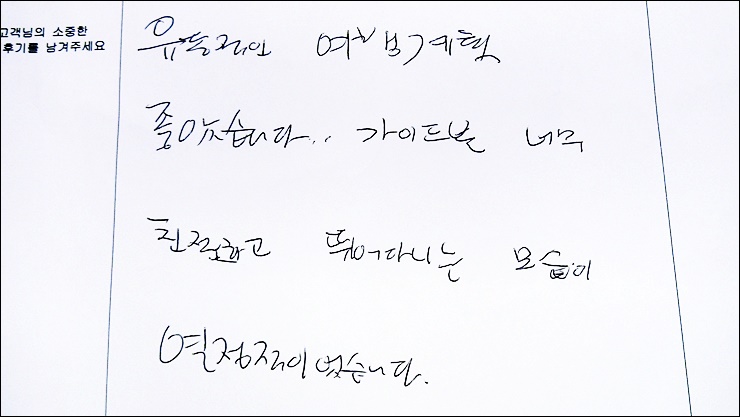 고객님의 소중한
후기를 남겨주세요
유동적인 여행계획
좋았습니다.. 가이드분 너무
친절하고 뛰어다니는 모습이
열정적이었습니다.